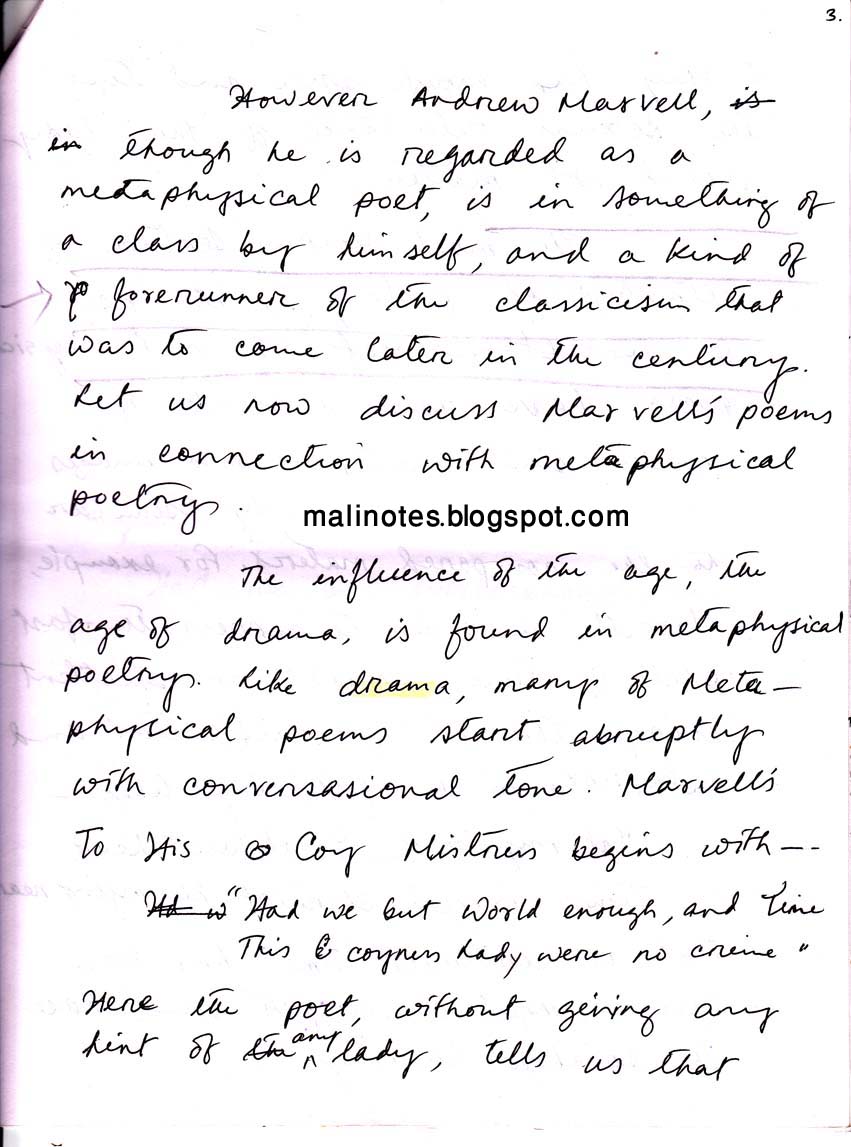 3.
However Andrew Marvell, is
in though he is regarded as a
metaphysical poet, is in something of
a class by himself, and a kind of
forerunner of the classicism that
was to come later in the century.
Let us now discuss Marvell's poems
in connection with metaphysical
poetry.
malinotes.blogspot.com
The influence of the age, the
age of drama, is found in metaphysical
poetry. Like drama, many of Meta-
physical poems start abruptly
with conversasional tone. Marvell's
To His Coy Mistress begins with--
"Had we but World enough, and Time
This coyness Lady were no crime"
Here the poet, without geiving any
hint of the any lady, tells us that